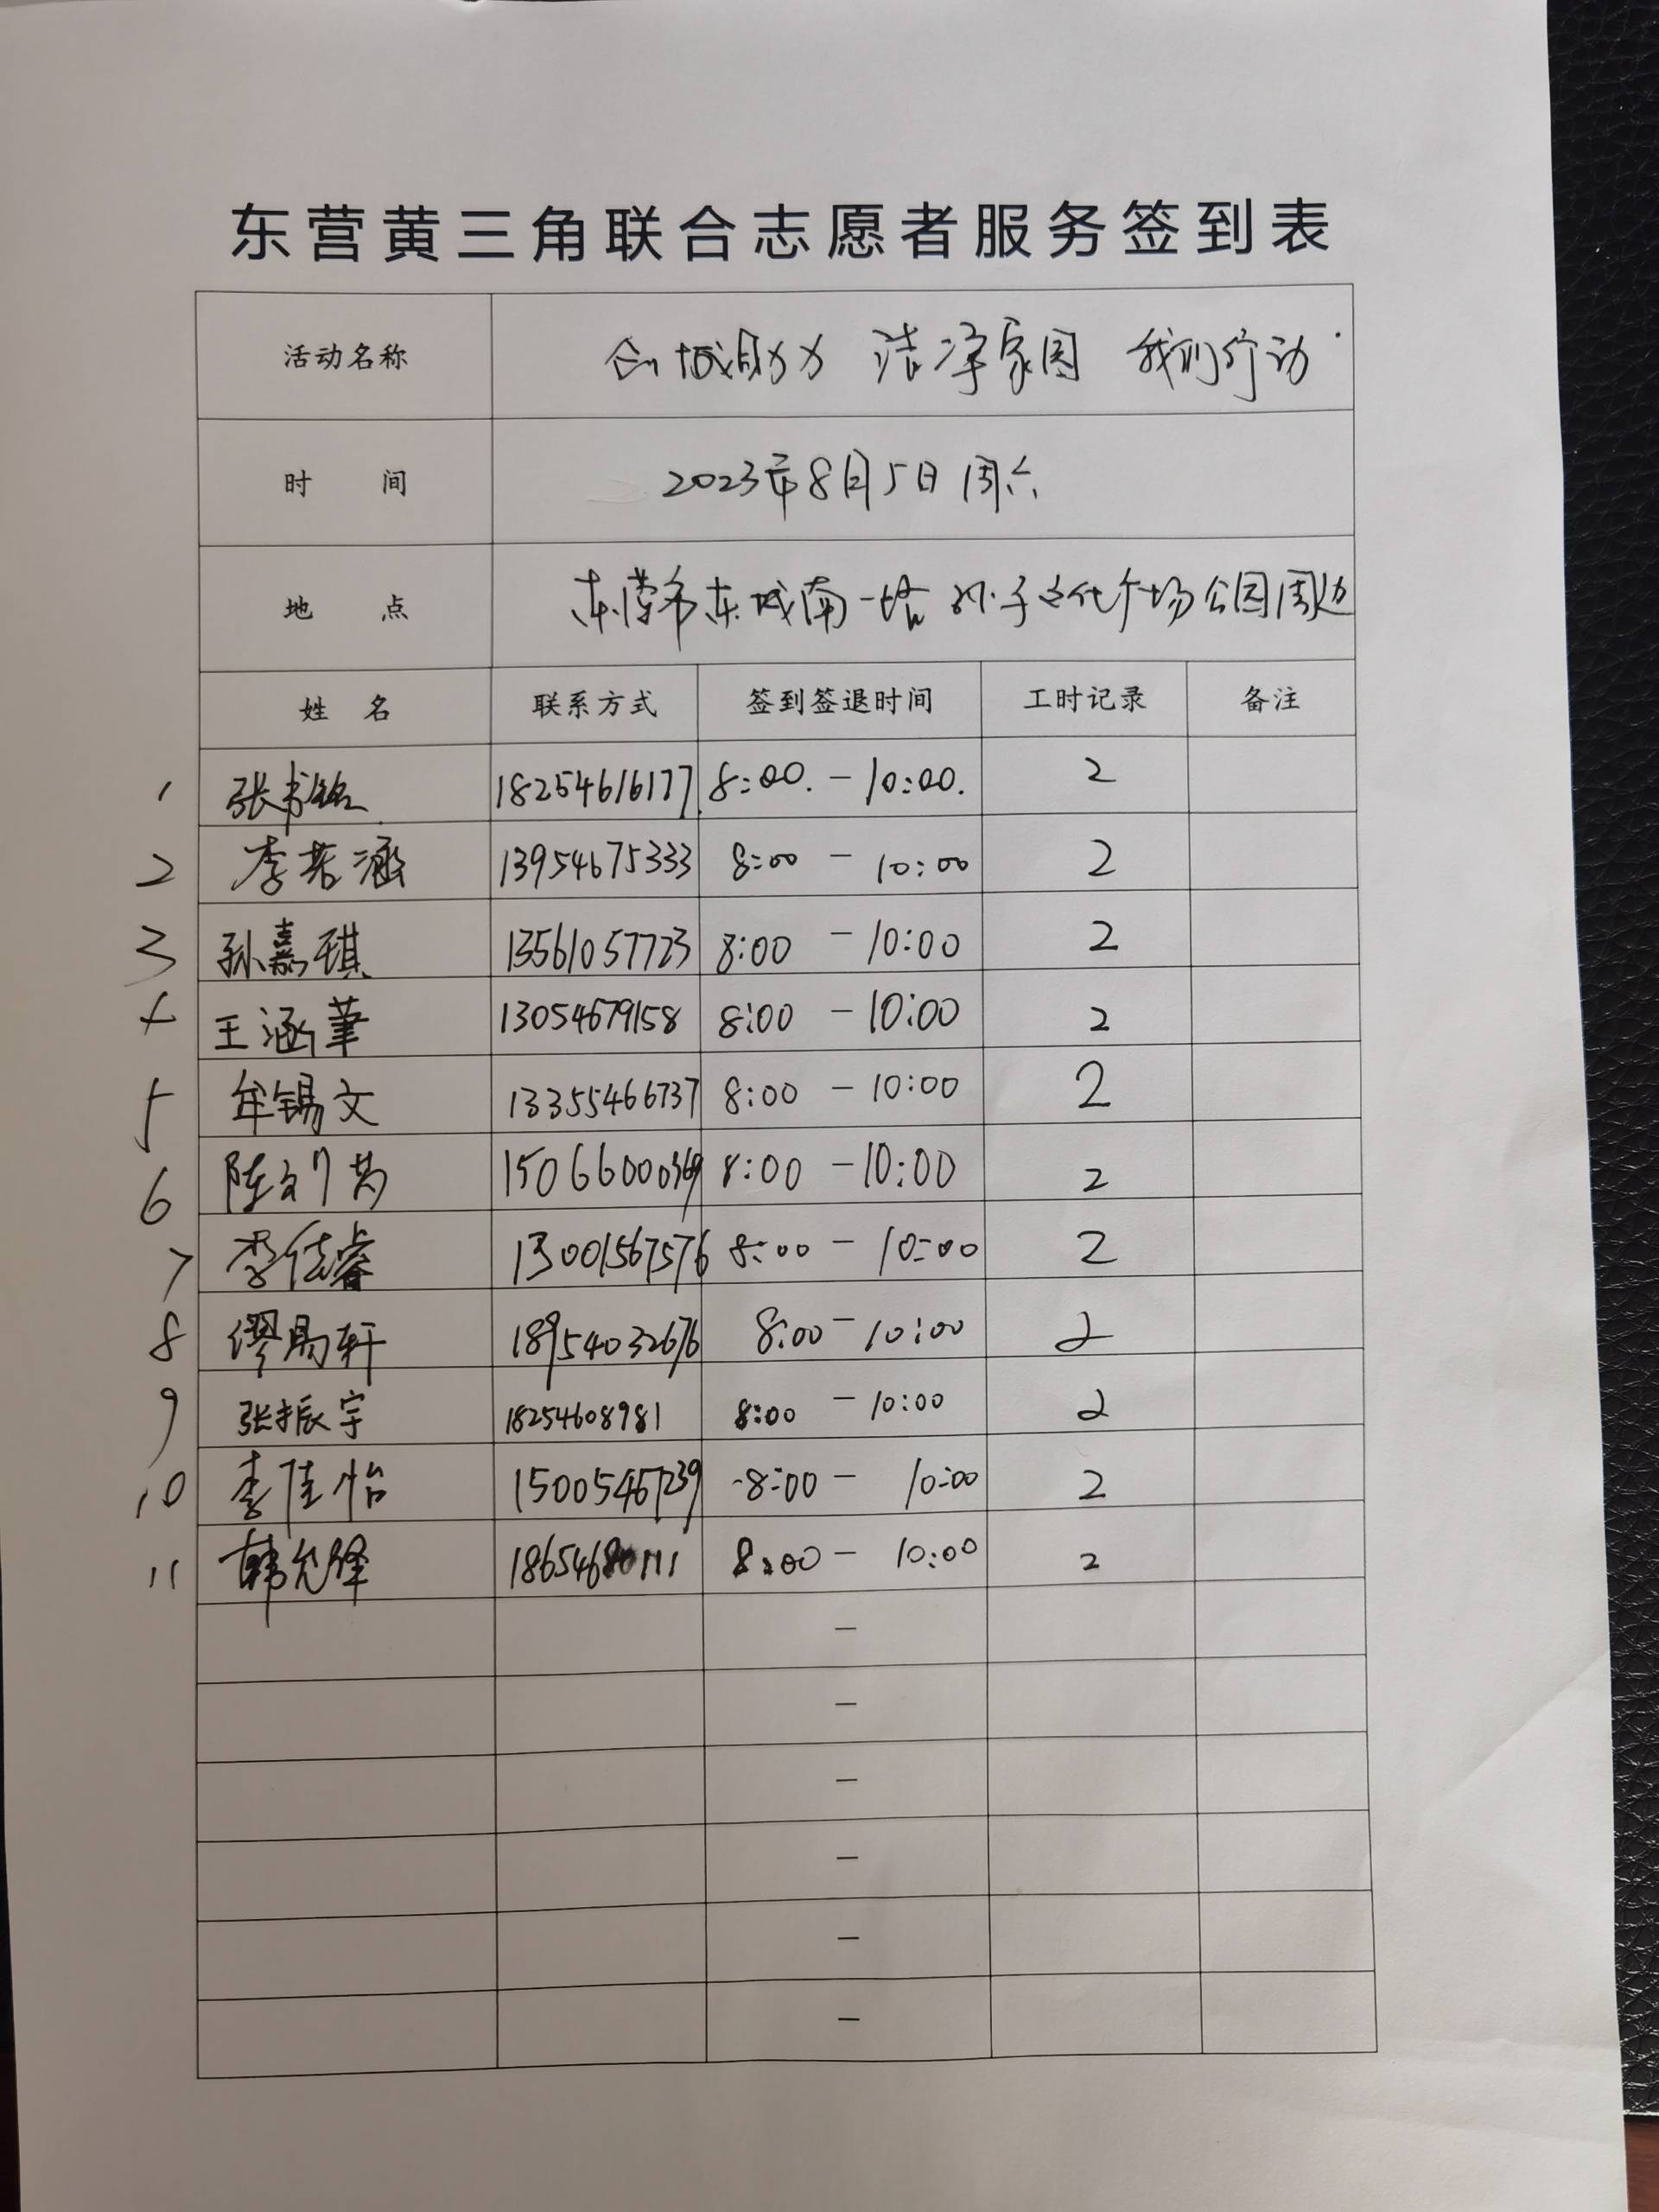 东营黄三角联合志愿者服务签到表
活动名称 创城助力 洁净家园 我们行动
时 间 2023年8月5日 周六
地 点 东营市东城南一路 孙子文化广场公园周边
姓 名 联系方式 签到签退时间 工时记录 备注
1 张书铭 18254616177 8:00. - 10:00. 2
2 李若涵 13954675333 8:00 - 10:00 2
3 孙嘉琪 13561057723 8:00 - 10:00 2
4 王涵 13054679158 8:00 - 10:00 2
5 牟锡文 13355466737 8:00 - 10:00 2
6 陈 15066000369 8:00 - 10:00 2
7 李佳睿 13001567576 8:00 - 10:00 2
8 缪轩 18954032676 8:00 - 10:00 2
9 张振宇 18254608981 8:00 - 10:00 2
10 李佳怡 15005467239 8:00 - 10:00 2
11 韩允泽 8:00 - 10:00 2
-
-
-
-
-
-